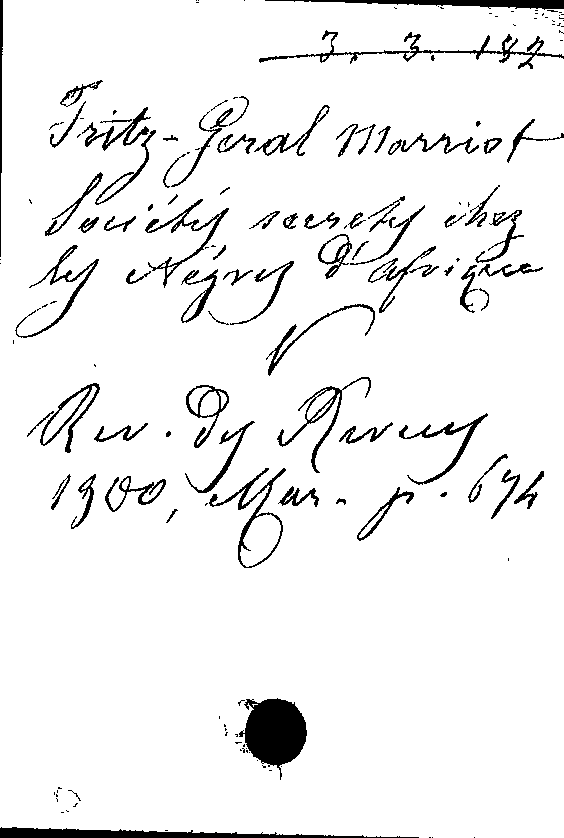 3. 3. 182
Fritz-Geral Marriot
Sociétés secretes chez
les Négres d'afrique
Rev. des Revues
1900, Mar. p. 674